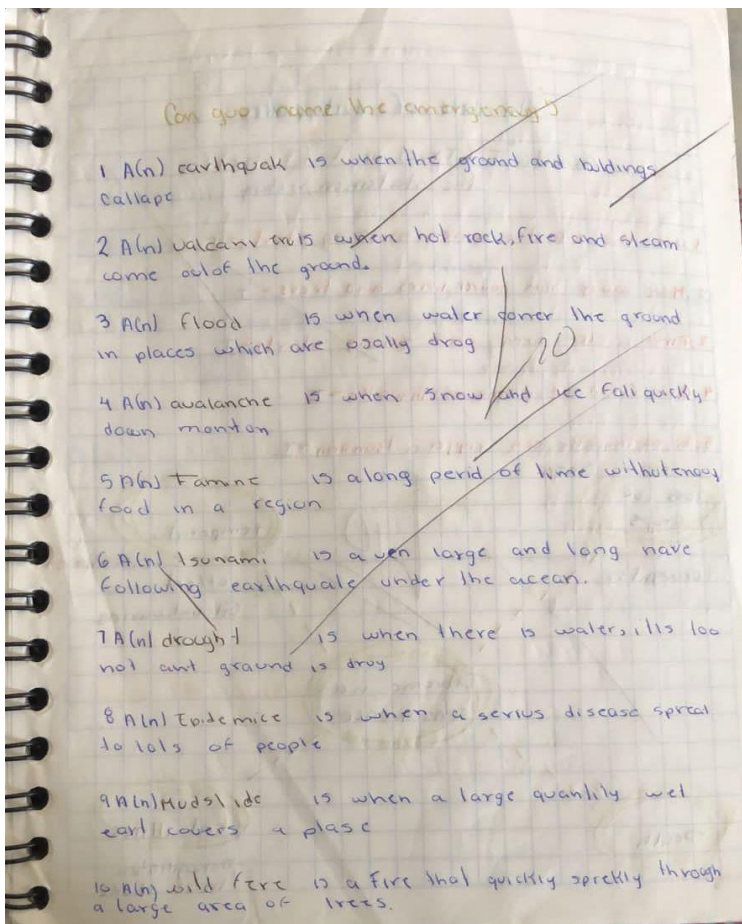 Can you name the emergensy?
1 A(n) earthquak is when the ground and buldings
callapc
2 A(n) valcanv is when hot rock, fire and steam
come out of the ground.
3 A(n) flood is when water coner the ground
in places which are osally drog
10
4 A(n) avalanche is when snow and ice fall quickly
down monton
5 A(n) Famine is a long perid of time without enoug
food in a region
6 A(n) Tsunami is a ven large and long nave
following earthquale under the acean.
7 A(n) drought is when there is water, it ls too
hot ant graund is druy
8 A(n) Epidemice is when a serius disease spreal
to lots of people
9 A(n) Mudslide is when a large quantily wet
eart covers a plase
10 A(n) wild fere is a Fire that quickly spreckly through
a large area of trees.